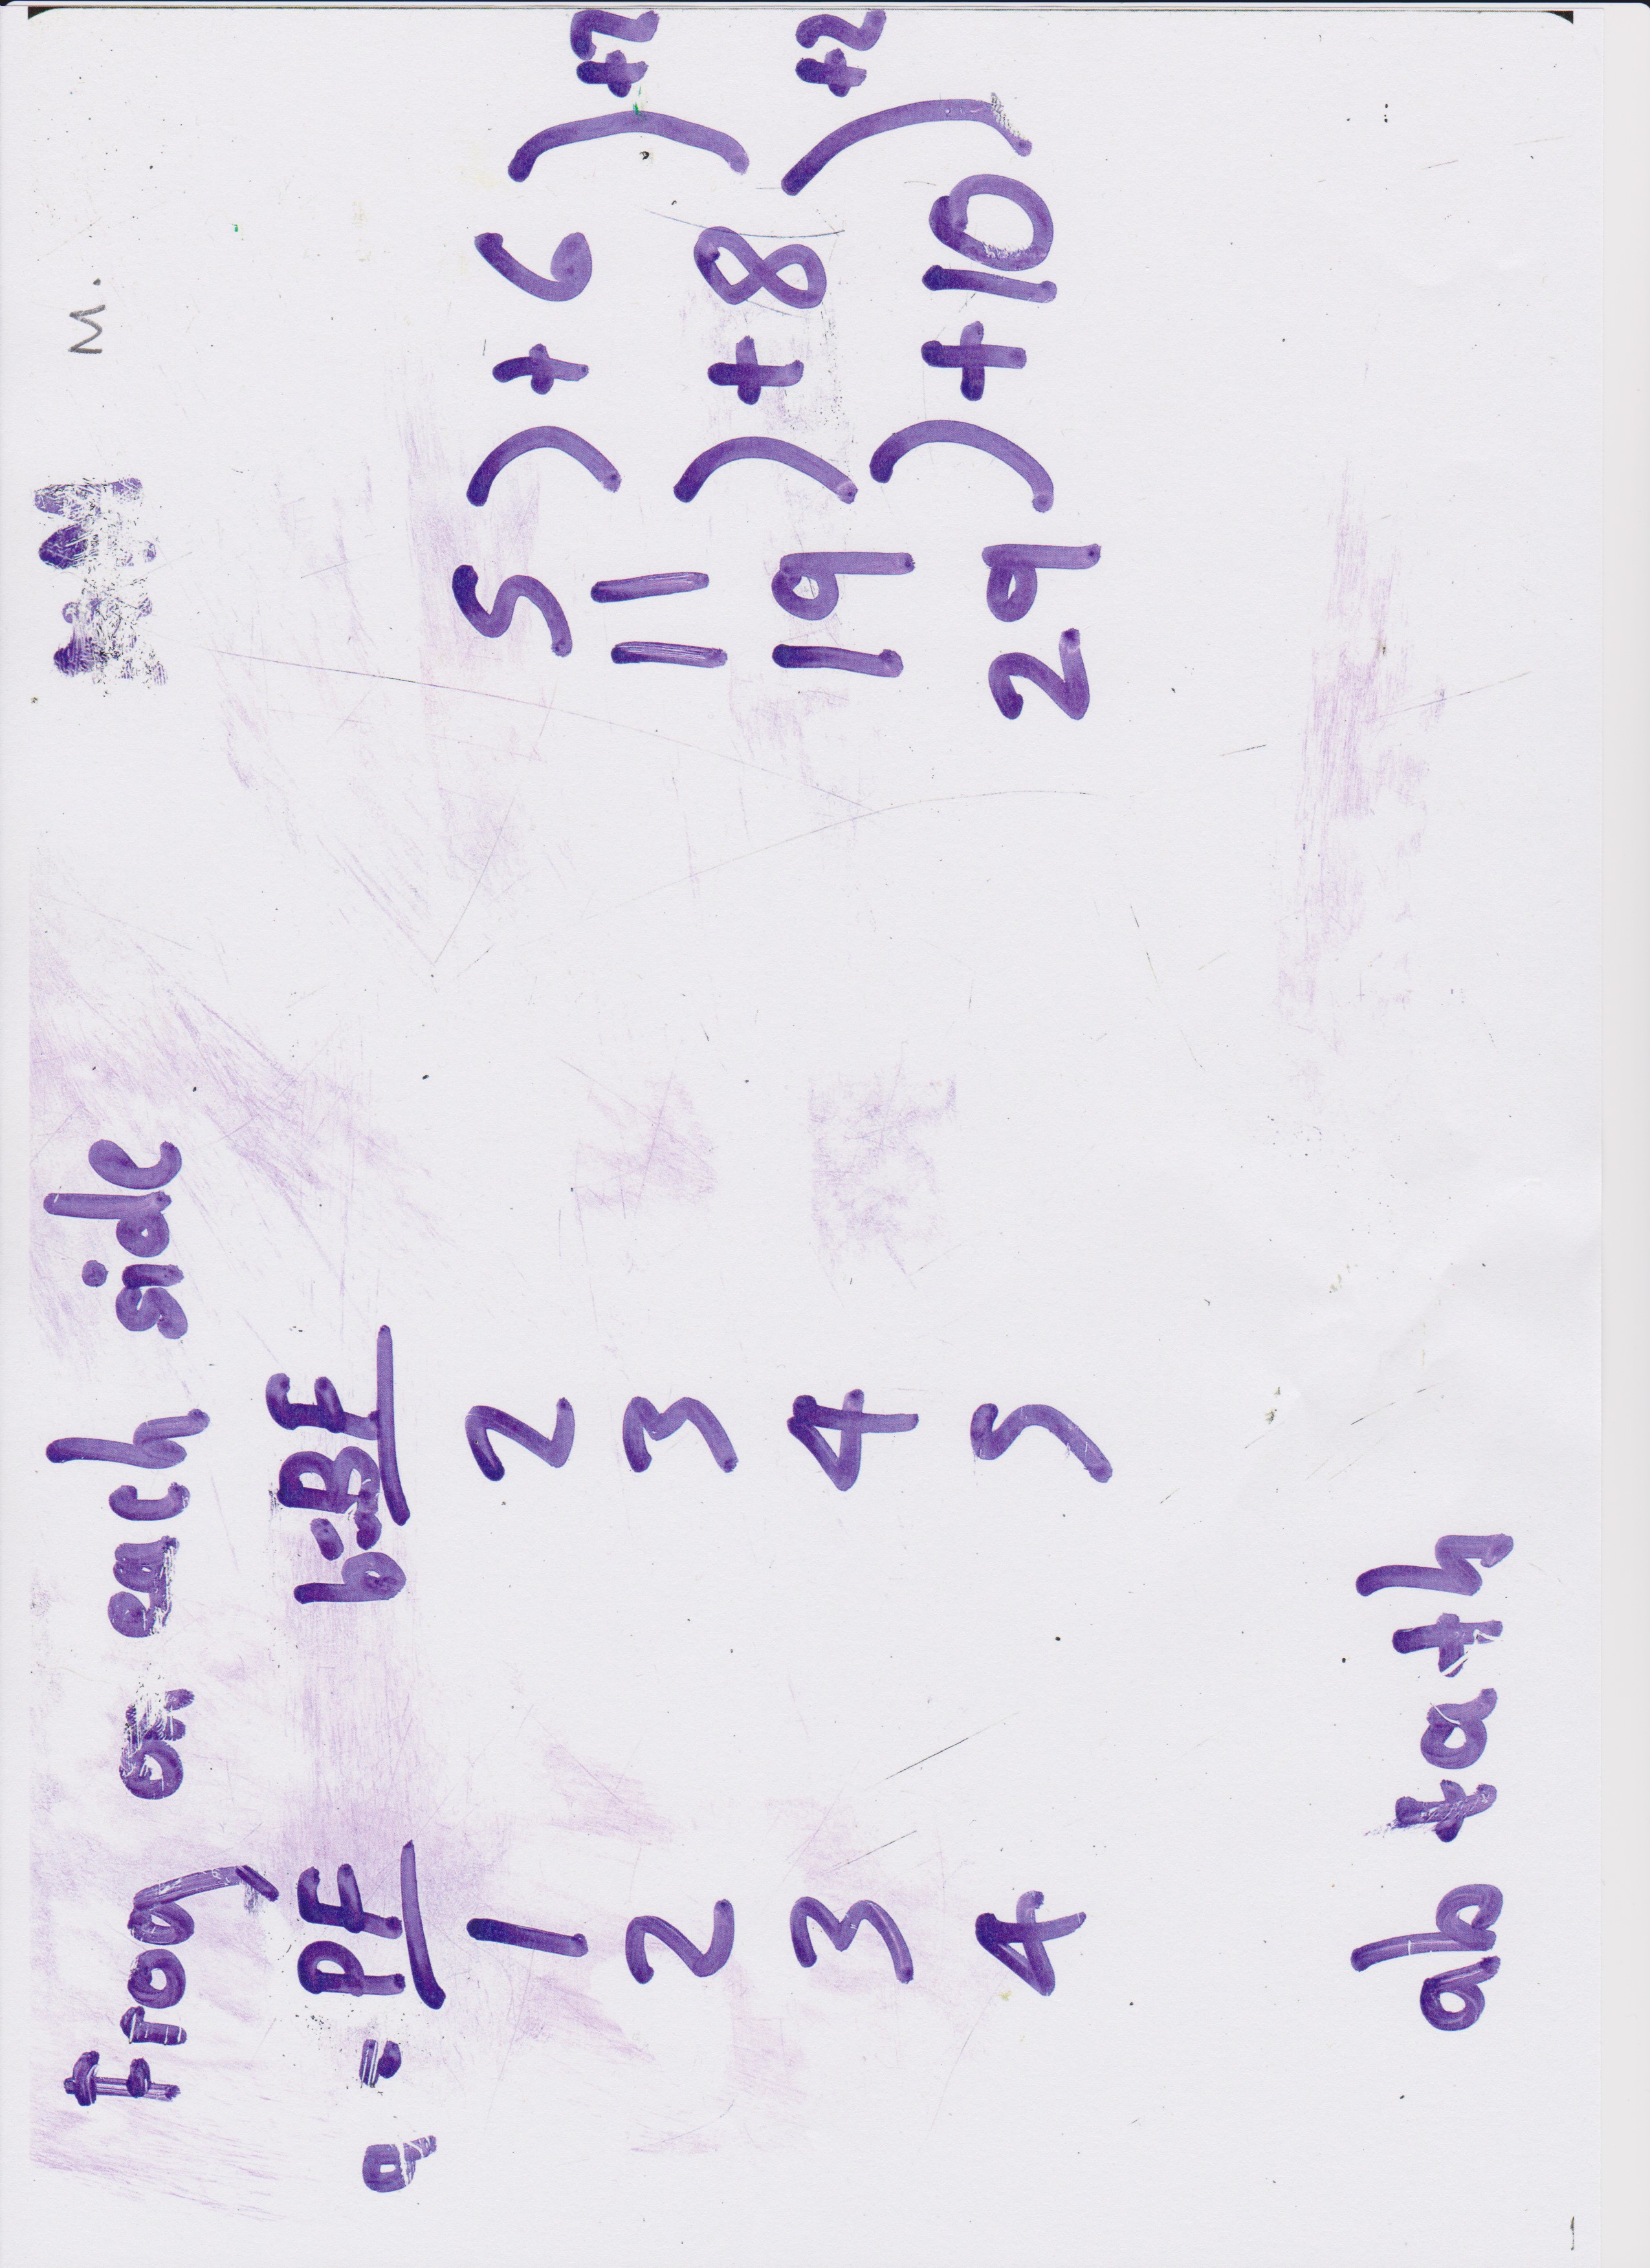 Frog on each side M M.
a = PF b = BF
1 2 5 ) +6 ) +2
2 3 11 ) +8 ) +2
3 4 19 ) +10
4 5 29
ab + a + b